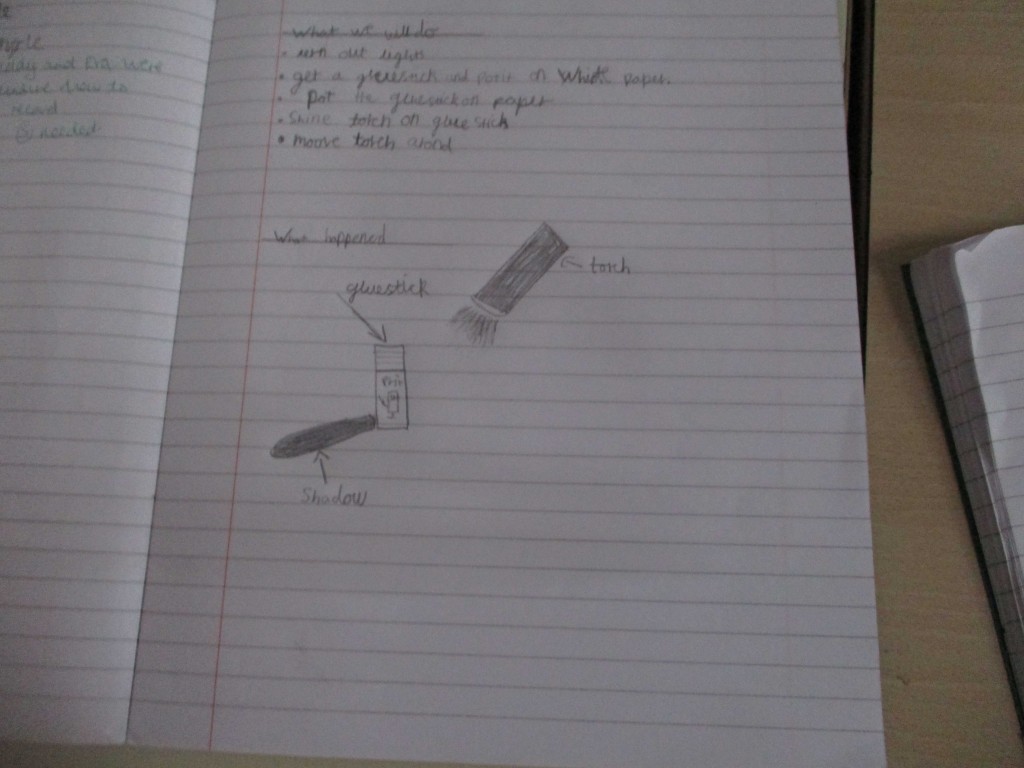 ngle
and Eva were
record
needed
What we will do
• turn out lights
• get a gluestick and posit on White paper.
• Pot the gluestick on paper
• Shine torch on glue stick
• moove torch arond
What happened
torch
gluestick
Prit
Shadow